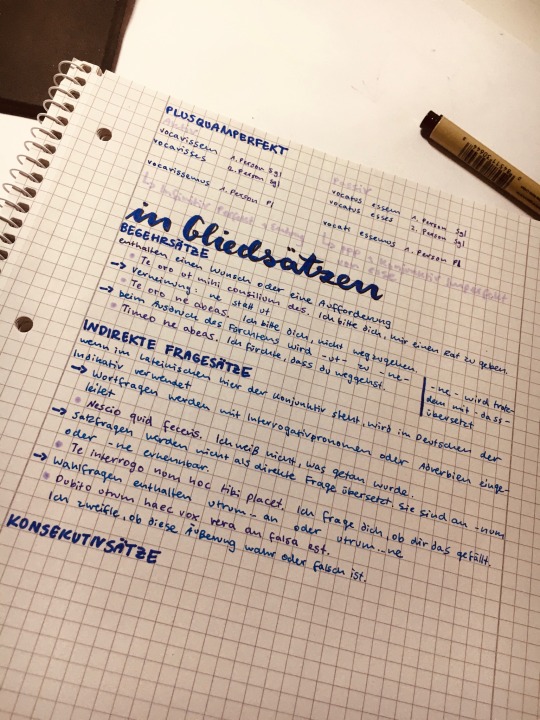 PLUSQUAMPERFEKT
Aktiv
Passiv
vocavissem 1. Person Sgl
vocavisses 2. Person Sgl
vocavissemus 1. Person Pl
vocatus essem 1. Person Sgl
vocatus esses 2. Person Sgl
vocati essemus 1. Person Pl
in Gliedsätzen
BEGEHRSÄTZE
enthalten einen Wunsch oder eine Aufforderung
• Te oro ut mihi consilium des. Ich bitte dich, mir einen Rat zu geben.
→ Verneinung: ne statt ut
• Te oro ne abeas. Ich bitte dich, nicht wegzugehen.
→ beim Ausdruck des Fürchtens wird -ut- zu -ne-
• Timeo ne abeas. Ich fürchte, dass du weggehst.
-ne- wird trotz-
dem mit -dass-
übersetzt
INDIREKTE FRAGESÄTZE
wenn im Lateinischen hier der Konjunktiv steht, wird im Deutschen der
Indikativ verwendet
→ Wortfragen werden mit Interrogativpronomen oder Adverbien einge-
leitet
• Nescio quid feceris. Ich weiß nicht, was getan wurde.
→ Satzfragen werden nicht als direkte Frage übersetzt sie sind an -num
oder -ne erkennbar.
• Te interrogo nom hoc tibi placet. Ich frage dich, ob dir das gefällt.
→ Wahlfragen enthalten utrum-an oder utrum...ne
• Dubito utrum haec vox vera an falsa est.
Ich zweifle, ob diese Äußerung wahr oder falsch ist.
KONSEKUTIVSÄTZE